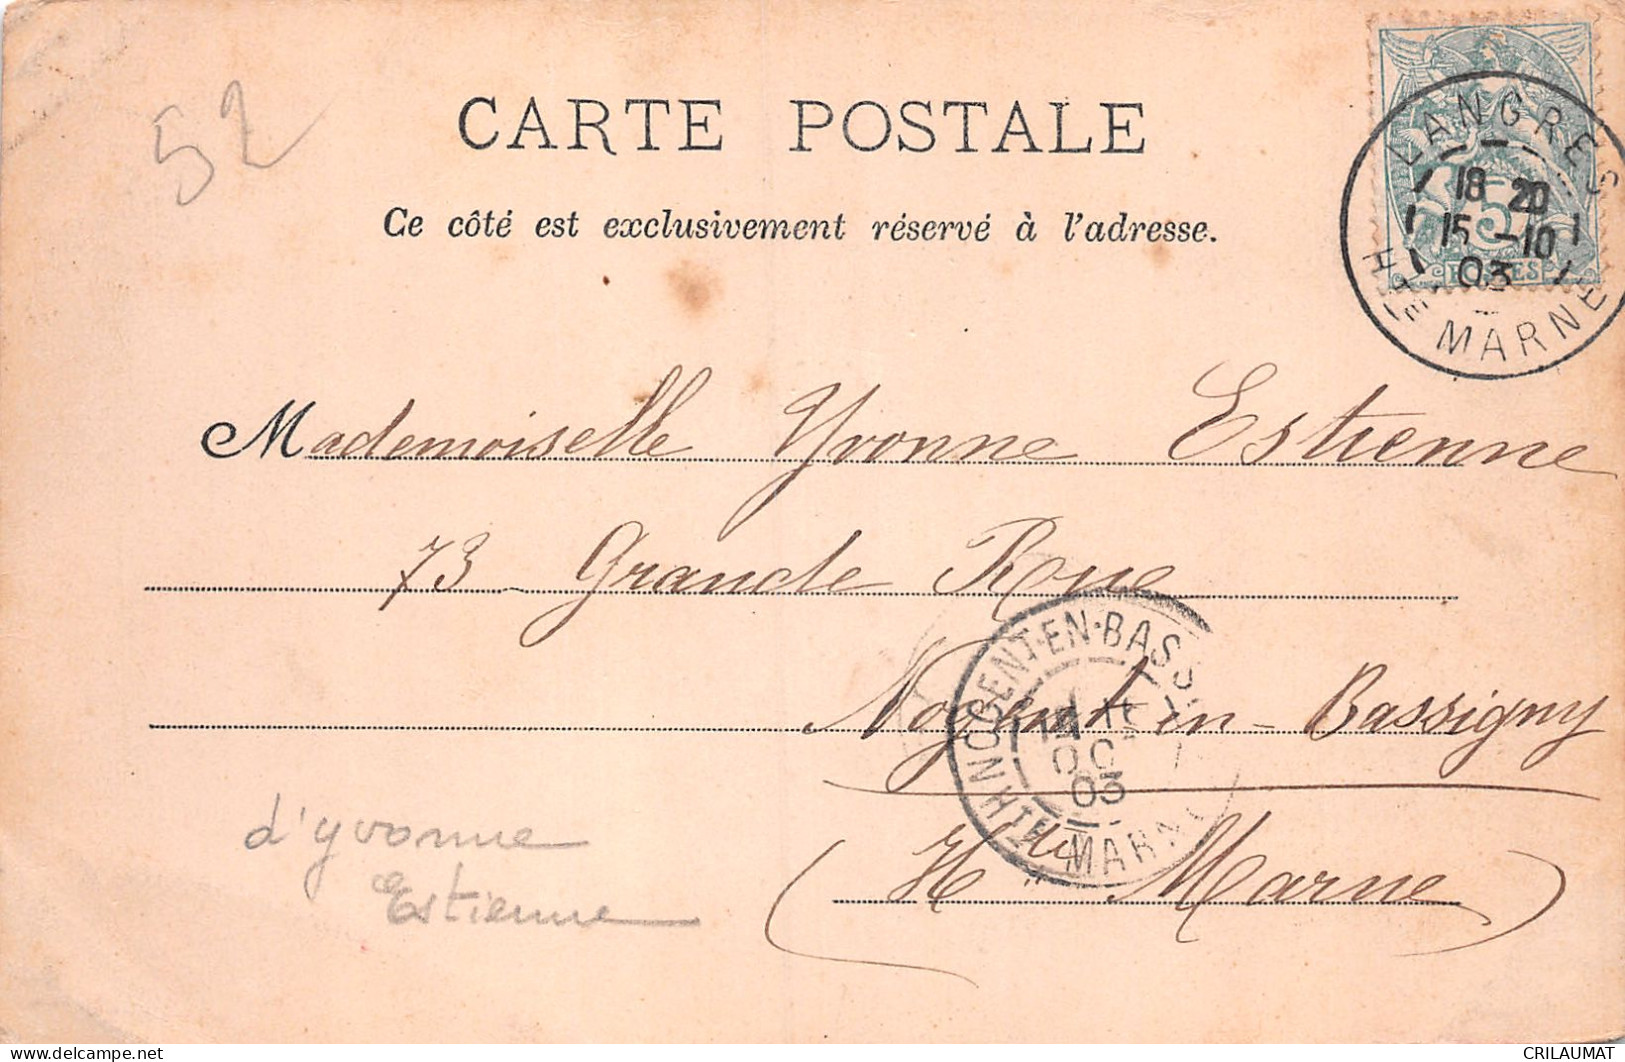 52
CARTE POSTALE
Ce côté est exclusivement réservé à l'adresse.
LANGRES
18 20
15 -10
03
HTE MARNE
5
POSTES
Mademoiselle Yvonne Estienne
73 Grande Rue
Nogent en-Bassigny
(Hte Marne)
NOGENT-EN-BASSI
OC
03
HTE MARNE
d'yvonne
Estienne
delcampe.net
CRILAUMAT